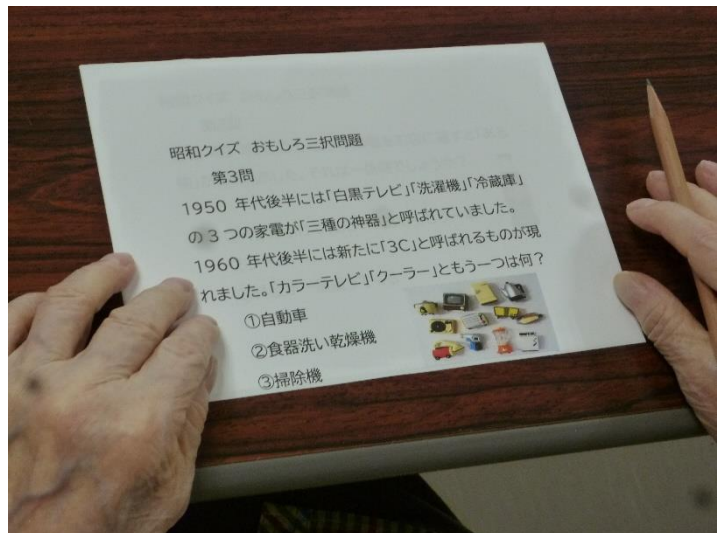 昭和クイズ おもしろ三択問題
第3問
1950 年代後半には「白黒テレビ」「洗濯機」「冷蔵庫」
の 3 つの家電が「三種の神器」と呼ばれていました。
1960 年代後半には新たに「3C」と呼ばれるものが現
れました。「カラーテレビ」「クーラー」ともう一つは何?
①自動車
②食器洗い乾燥機
③掃除機